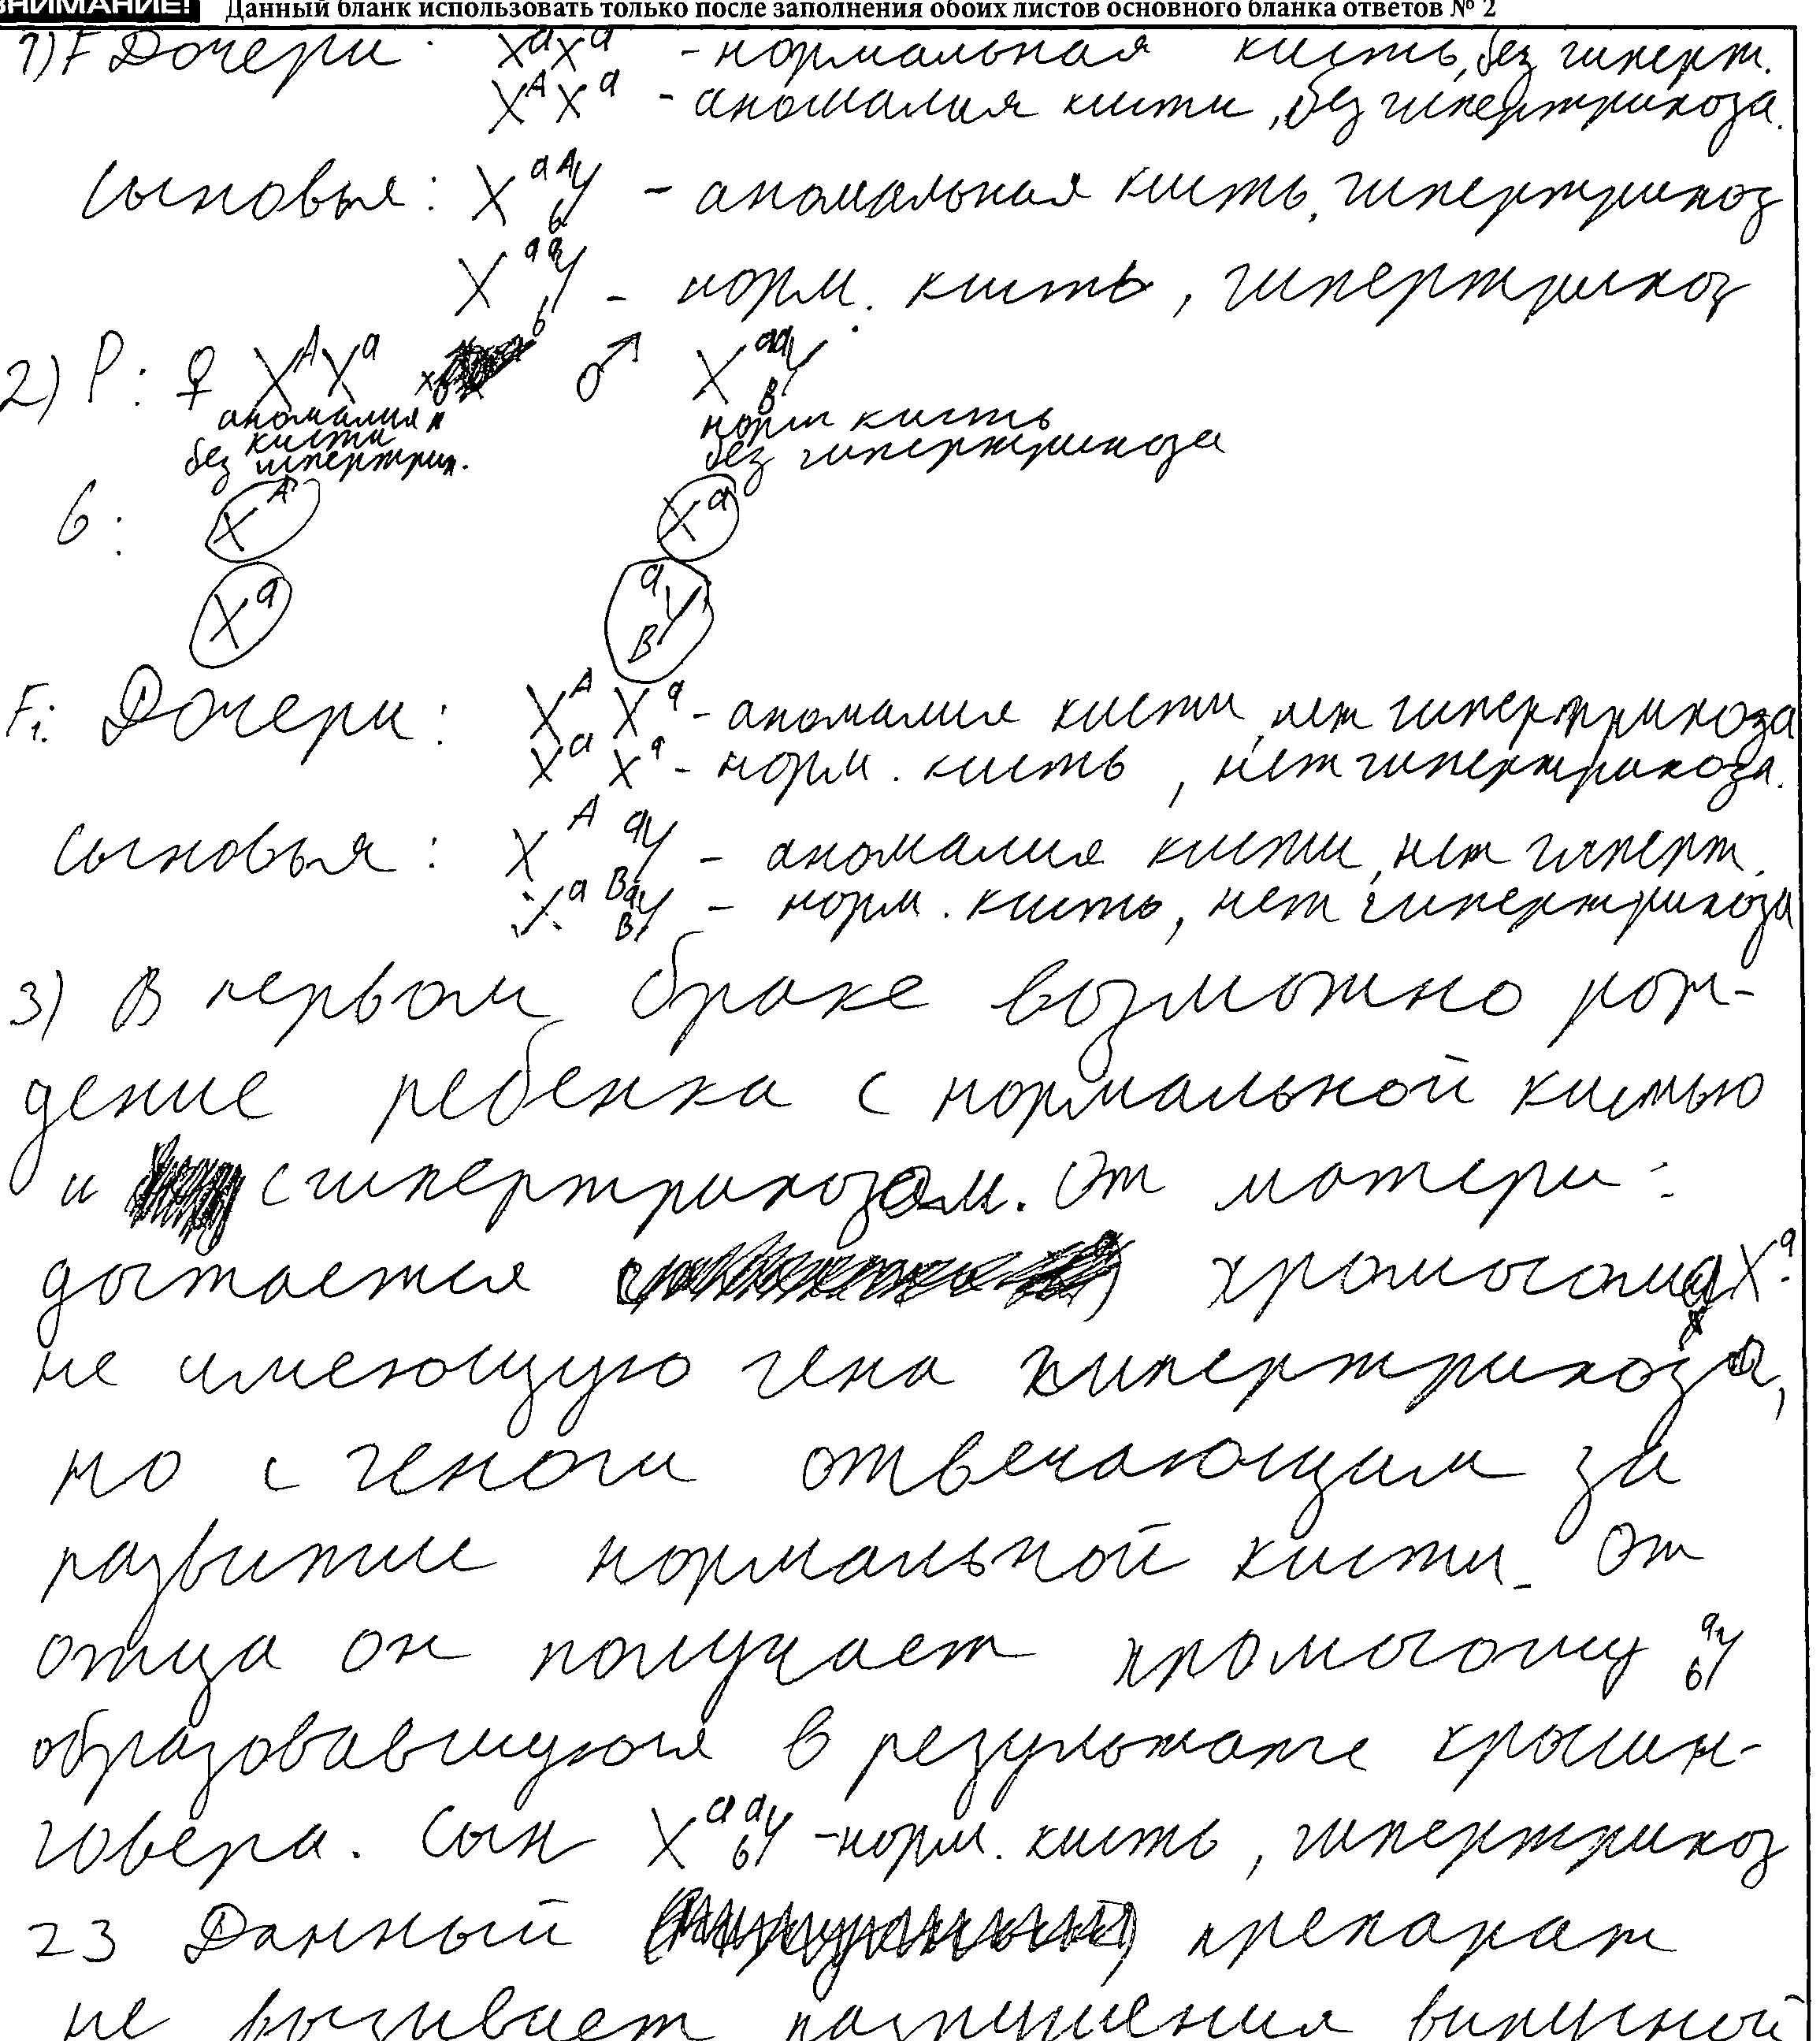 ВНИМАНИЕ! Данный бланк использовать только после заполнения обоих листов основного бланка ответов № 2
1) F Дочери: XᵃXᵃ - нормальная кисть, без гиперт.
XᴬXᵃ - аномалия кисти, без гипертрихоза.
сыновья: XᵃᴬY b - аномальная кисть, гипертрихоз
XᵃᵃY b - норм. кисть, гипертрихоз
2) P: ♀ XᴬXᵃ x ♂ XᵃᵃY B
аномалия норм кисть
кисти без гипертрихоза
без гипертрих.
G: Xᴬ Xᵃ
Xᵃ ᵃY B
F₁: Дочери: XᴬXᵃ - аномалия кисти, нет гипертрихоза
XᵃXᵃ - норм. кисть, нет гипертрихоза.
сыновья: XᴬᵃY B - аномалия кисти, нет гиперт.
XᵃᵃY B - норм. кисть, нет гипертрихоза
3) В первом браке возможно рож-
дение ребенка с нормальной кистью
и с гипертрихозом. От матери:
достается хромосома Xᵃ
не имеющую гена гипертрихоза,
но с геном отвечающим за
развитие нормальной кисти. От
отца он получает хромосому ᵃY b
образовавшуюся в результате кроссин-
говера. Сын XᵃᵃY b - норм. кисть, гипертрихоз
23 Данный препарат
не вызывает разрушения вирусной